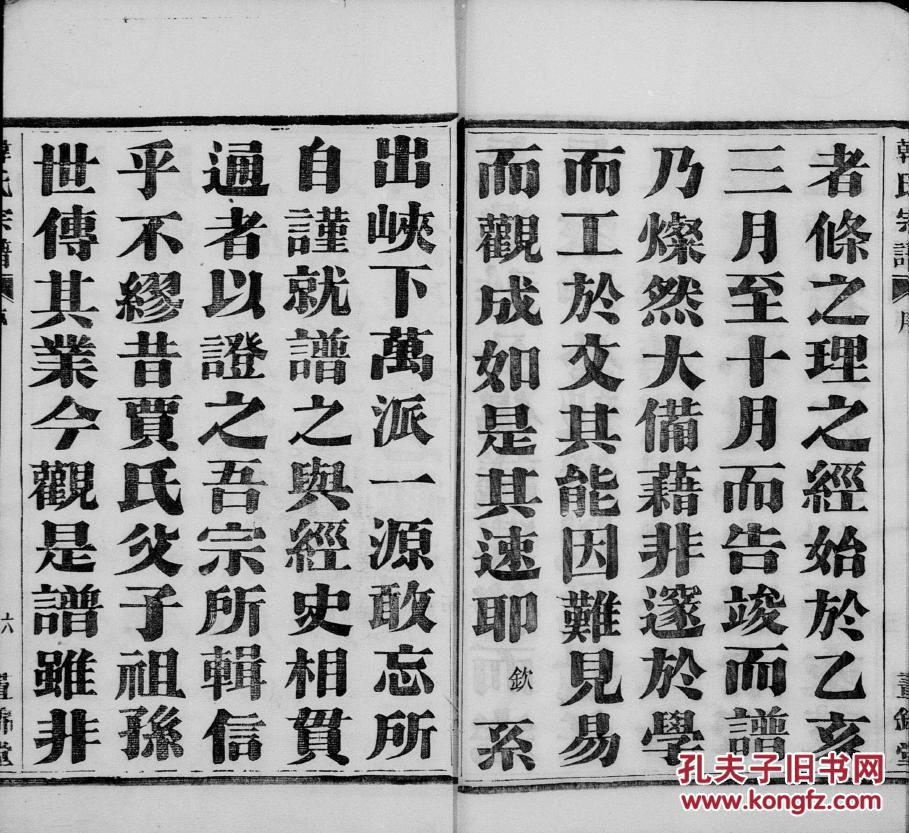 韓氏宗譜 序 晝錦堂
者條之理之經始於乙亥
三月至十月而告竣而譜
乃燦然大備藉非邃於學
而工於文其能因難見易
而觀成如是其速耶 欽 系
出峽下萬派一源敢忘所
自謹就譜之與經史相貫
通者以證之吾宗所輯信
乎不繆昔賈氏父子祖孫
世傳其業今觀是譜雖非
韓氏宗譜 序 六 晝錦堂
孔夫子旧书网
www.kongfz.com